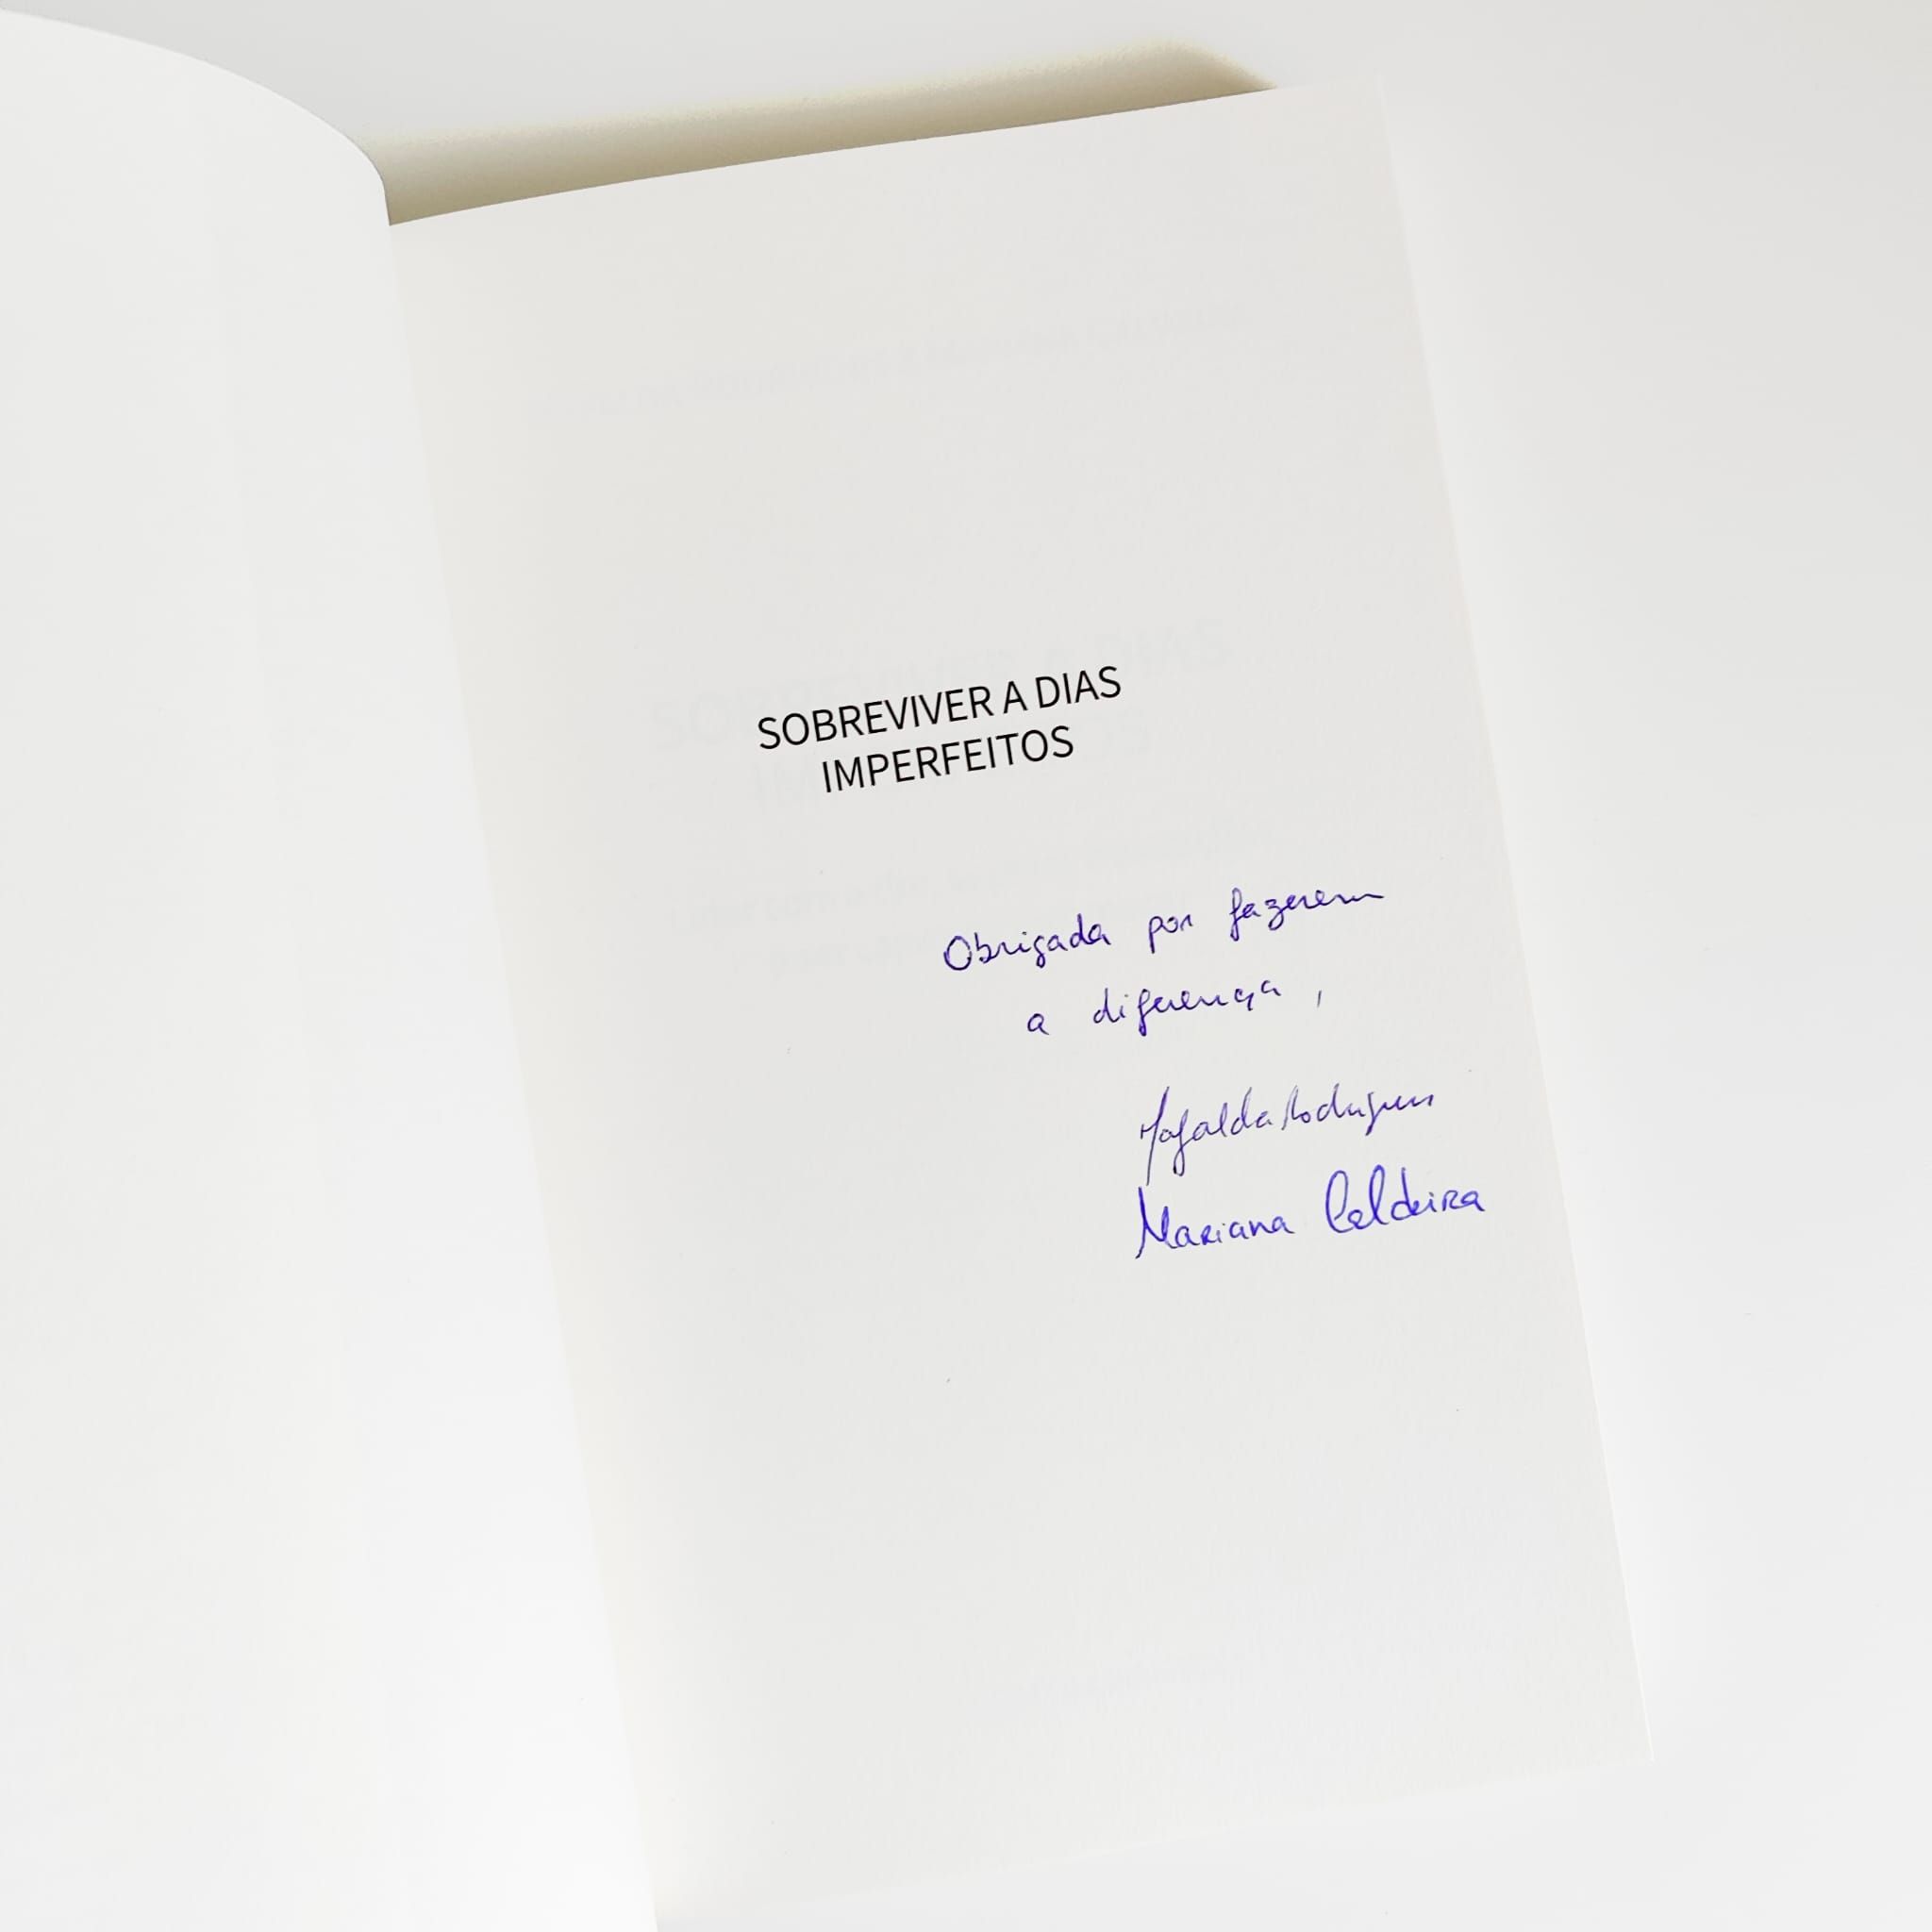 SOBREVIVER A DIAS
IMPERFEITOS
Obrigada por fazerem
a diferença,
Mafalda Rodrigues
Mariana Caldeira